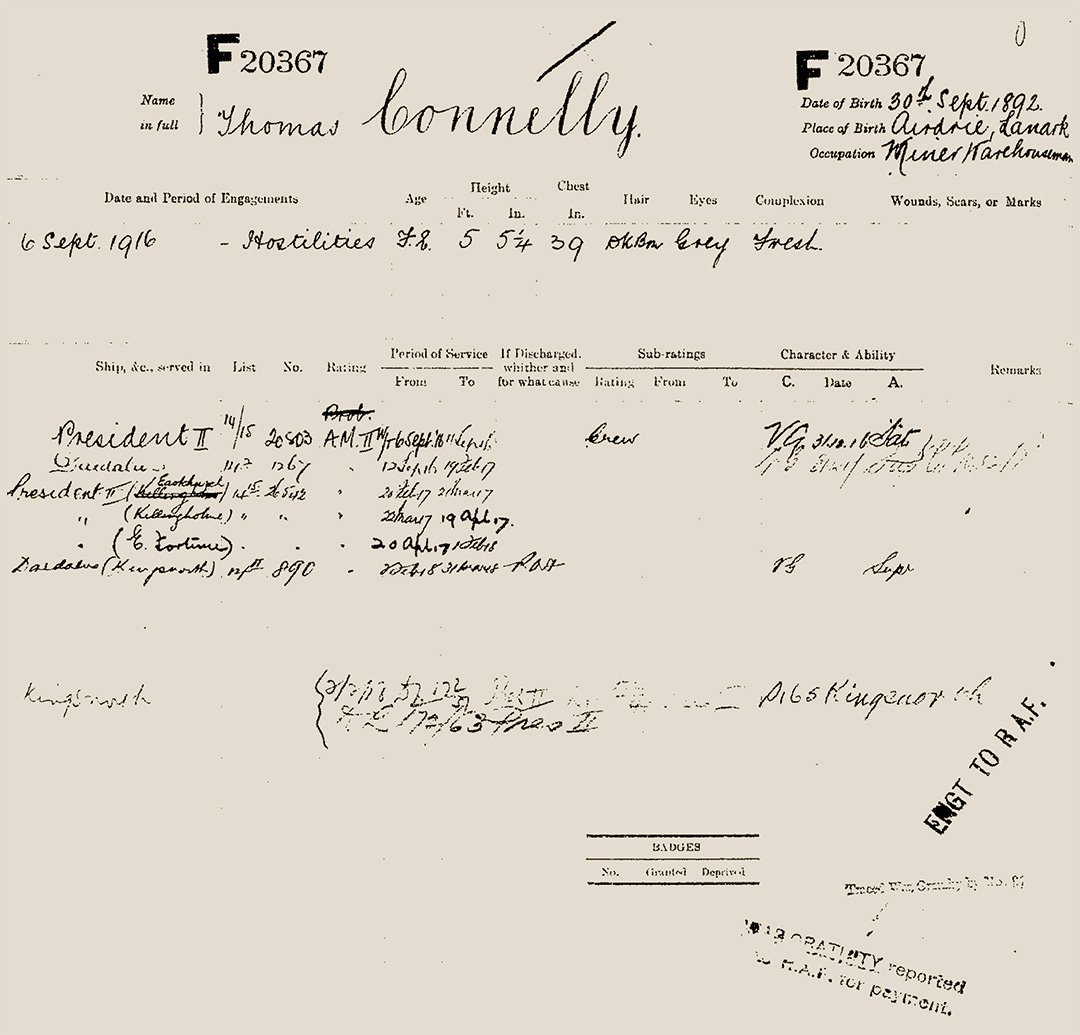 F 20367
F 20367
Name in full } Thomas Connelly.
Date of Birth 30th Sept. 1892.
Place of Birth Airdrie, Lanark
Occupation Miner Warehouseman
Date and Period of Engagements Age Height Ft. In. Chest In. Hair Eyes Complexion Wounds, Scars, or Marks
6 Sept. 1916 - Hostilities F.E. 5 5¼ 39 Dk Brn Grey Fresh.
Ship, &c., served in List No. Rating Period of Service From To If Discharged, whither and for what cause Sub-ratings Rating From To Character & Ability C. Date A. Remarks
Prob.
President II 14/15 20503 A.M. II 6 Sept. 16 Crew V.G. 31.12.16 Sat
Daedalus 1367 12 Sep 16 19 Feb 17
President II (Eastchurch) 20 Feb 17 21 Mar 17
" (Killingholme) " " " 22 Mar 17 19 Apl. 17.
" (E. Fortune) " " " 20 Apl. 17 1 Feb 18
Daedalus (Kingsnorth) 890 " 2 Feb 18 31 Mar 18 VG Supr
Kingsnorth Pres II 165 Kingsnorth
ENGT TO R.A.F.
BADGES
No. Granted Deprived
Traced War Gratuity by No.
WAR GRATUITY reported
to R.A.F. for payment.